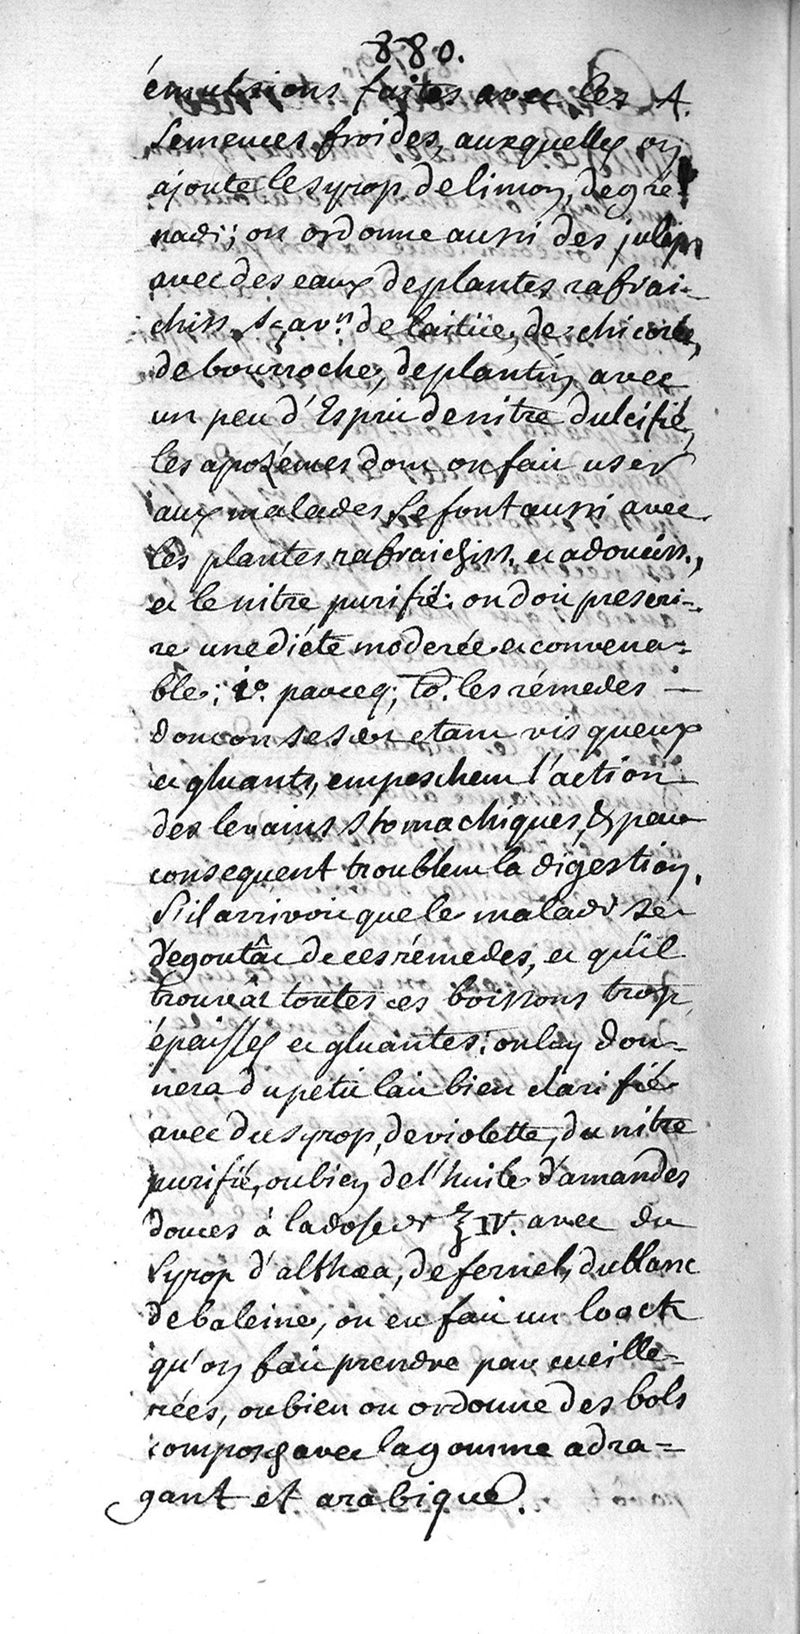 880.
émulsions faites avec les 4.
semences froides, auxquelles on
ajoute le syrop de limon, de gre-
nade; on ordonne aussi des juleps
avec des eaux de plantes rafrai-
chiss. sçavn. de laitüe, de chicorée,
de bourroche, de plantin, avec
un peu d'Esprit de nitre dulcifié,
les apozémes dont on fait user
aux malades se font aussi avec
les plantes rafraichiss. et adouciss.,
et le nitre purifié; on doit prescri-
re une diéte moderée et convena=
ble; 1o. parceq; to. les rémedes —
dont on se sert etant visqueux
et gluants, empeschent l'action
des levains stomachiques, & par
consequent troublent la digestion.
S'il arrivoit que le malade se
dégoutât de ces rémedes, et qu'il
trouvât toutes ces boissons trop
épaisses et gluantes; on luy don-
nera du petit lait bien clarifié
avec du syrop, de violette, du nitre
purifié, ou bien de l'huile d'amandes
douces à la dose de ℥ IV. avec du
syrop d'althæa, de fernel, du blanc
de baleine, on en fait un loock
qu'on fait prendre par cueille=
rées, ou bien on ordonne des bols
composés avec la gomme adra=
gant et arabique.